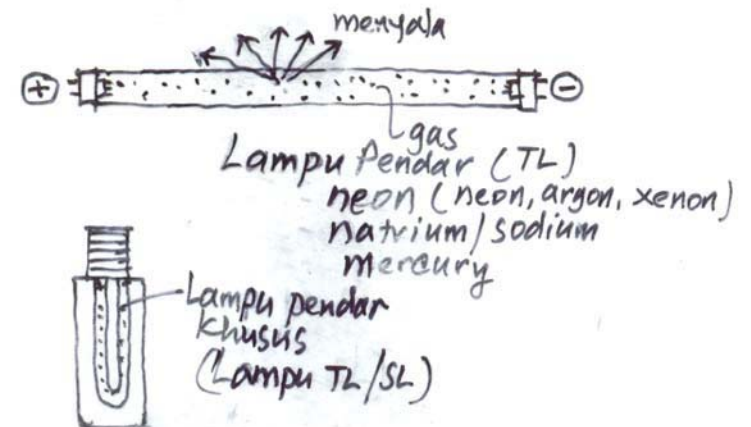 menyala
+ −
gas
Lampu Pendar (TL)
neon (neon, argon, xenon)
natrium/sodium
mercury
Lampu pendar
khusus
(Lampu TL/SL)